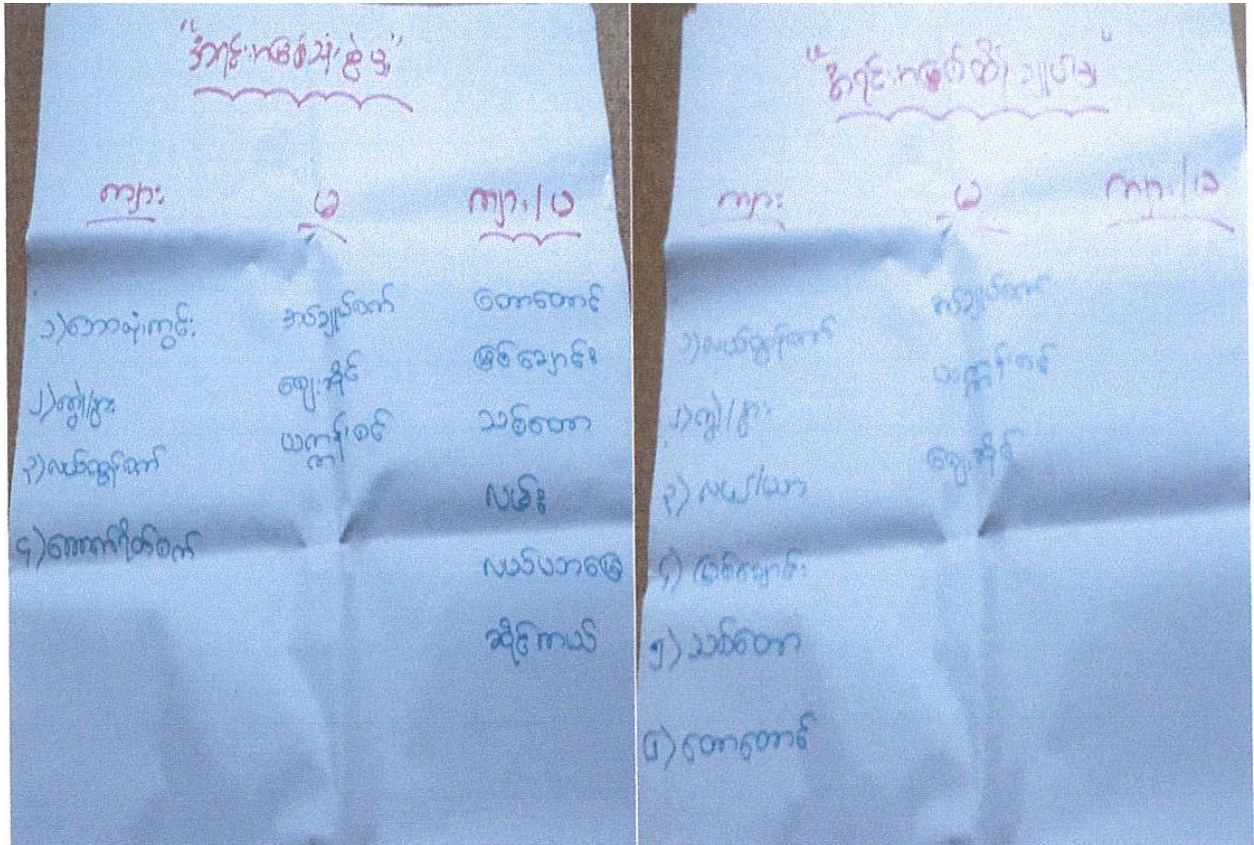 "အရင်းအမြစ်သုံးစွဲမှု"
ကျား မ ကျား/မ
၁)ဘောလုံးကွင်း
၂)ကျွဲ/နွား
၃)လယ်ထွန်စက်
၄)ကောက်ရိတ်စက်
အပ်ချုပ်စက်
ဈေးဆိုင်
ယက္ကန်းစင်
တောတောင်
မြစ်ချောင်း
သစ်တော
လမ်း
လယ်ယာမြေ
ဆိုင်ကယ်
"အရင်းအမြစ်ထိန်းချုပ်မှု"
ကျား မ ကျား/မ
၁)လယ်ထွန်စက်
၂)ကျွဲ/နွား
၃)လယ်/ယာ
၄)မြစ်ချောင်း
၅)သစ်တော
၆)တောတောင်
အပ်ချုပ်စက်
ယက္ကန်းစင်
ဈေးဆိုင်